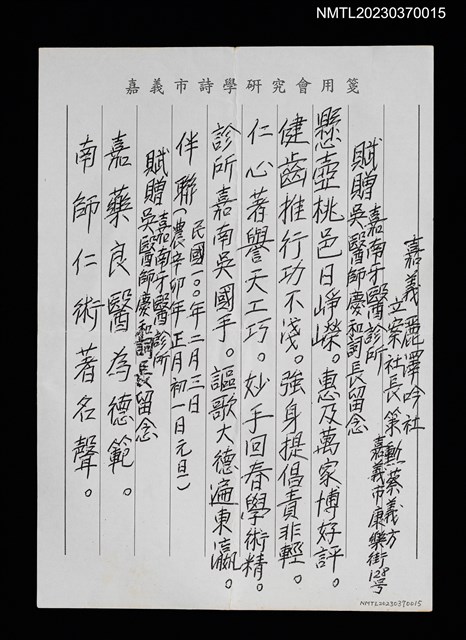 NMTL20230370015
嘉義市詩學研究會用箋
嘉義麗澤吟社
立案社長策勳蔡義方
嘉義市康樂街128号
賦贈嘉南牙醫診所
吳醫師慶和詞長留念
懸壺桃邑日崢嶸。惠及萬家博好評。
健齒推行功不淺。強身提倡責非輕。
仁心著譽天工巧。妙手回春學術精。
診所嘉南吳國手。謳歌大德遍東瀛。
伴聯(民國一00年二月三日
農辛卯年正月初一日元旦)
賦贈嘉南牙醫診所
吳醫師慶和詞長留念
嘉藥良醫為德範。
南師仁術著名聲。
NMTL20230370015